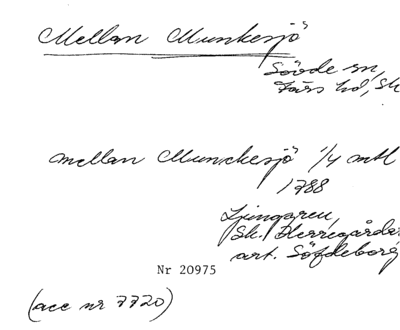 Mellan Munkesjö
Sövde sn,
Färs hd, Sk
mellan Munckesjö 1/4 mtl
1788
Ljunggren,
Sk. Herregårdar
art. Söfdeborg
Nr 20975
(acc nr 7720)